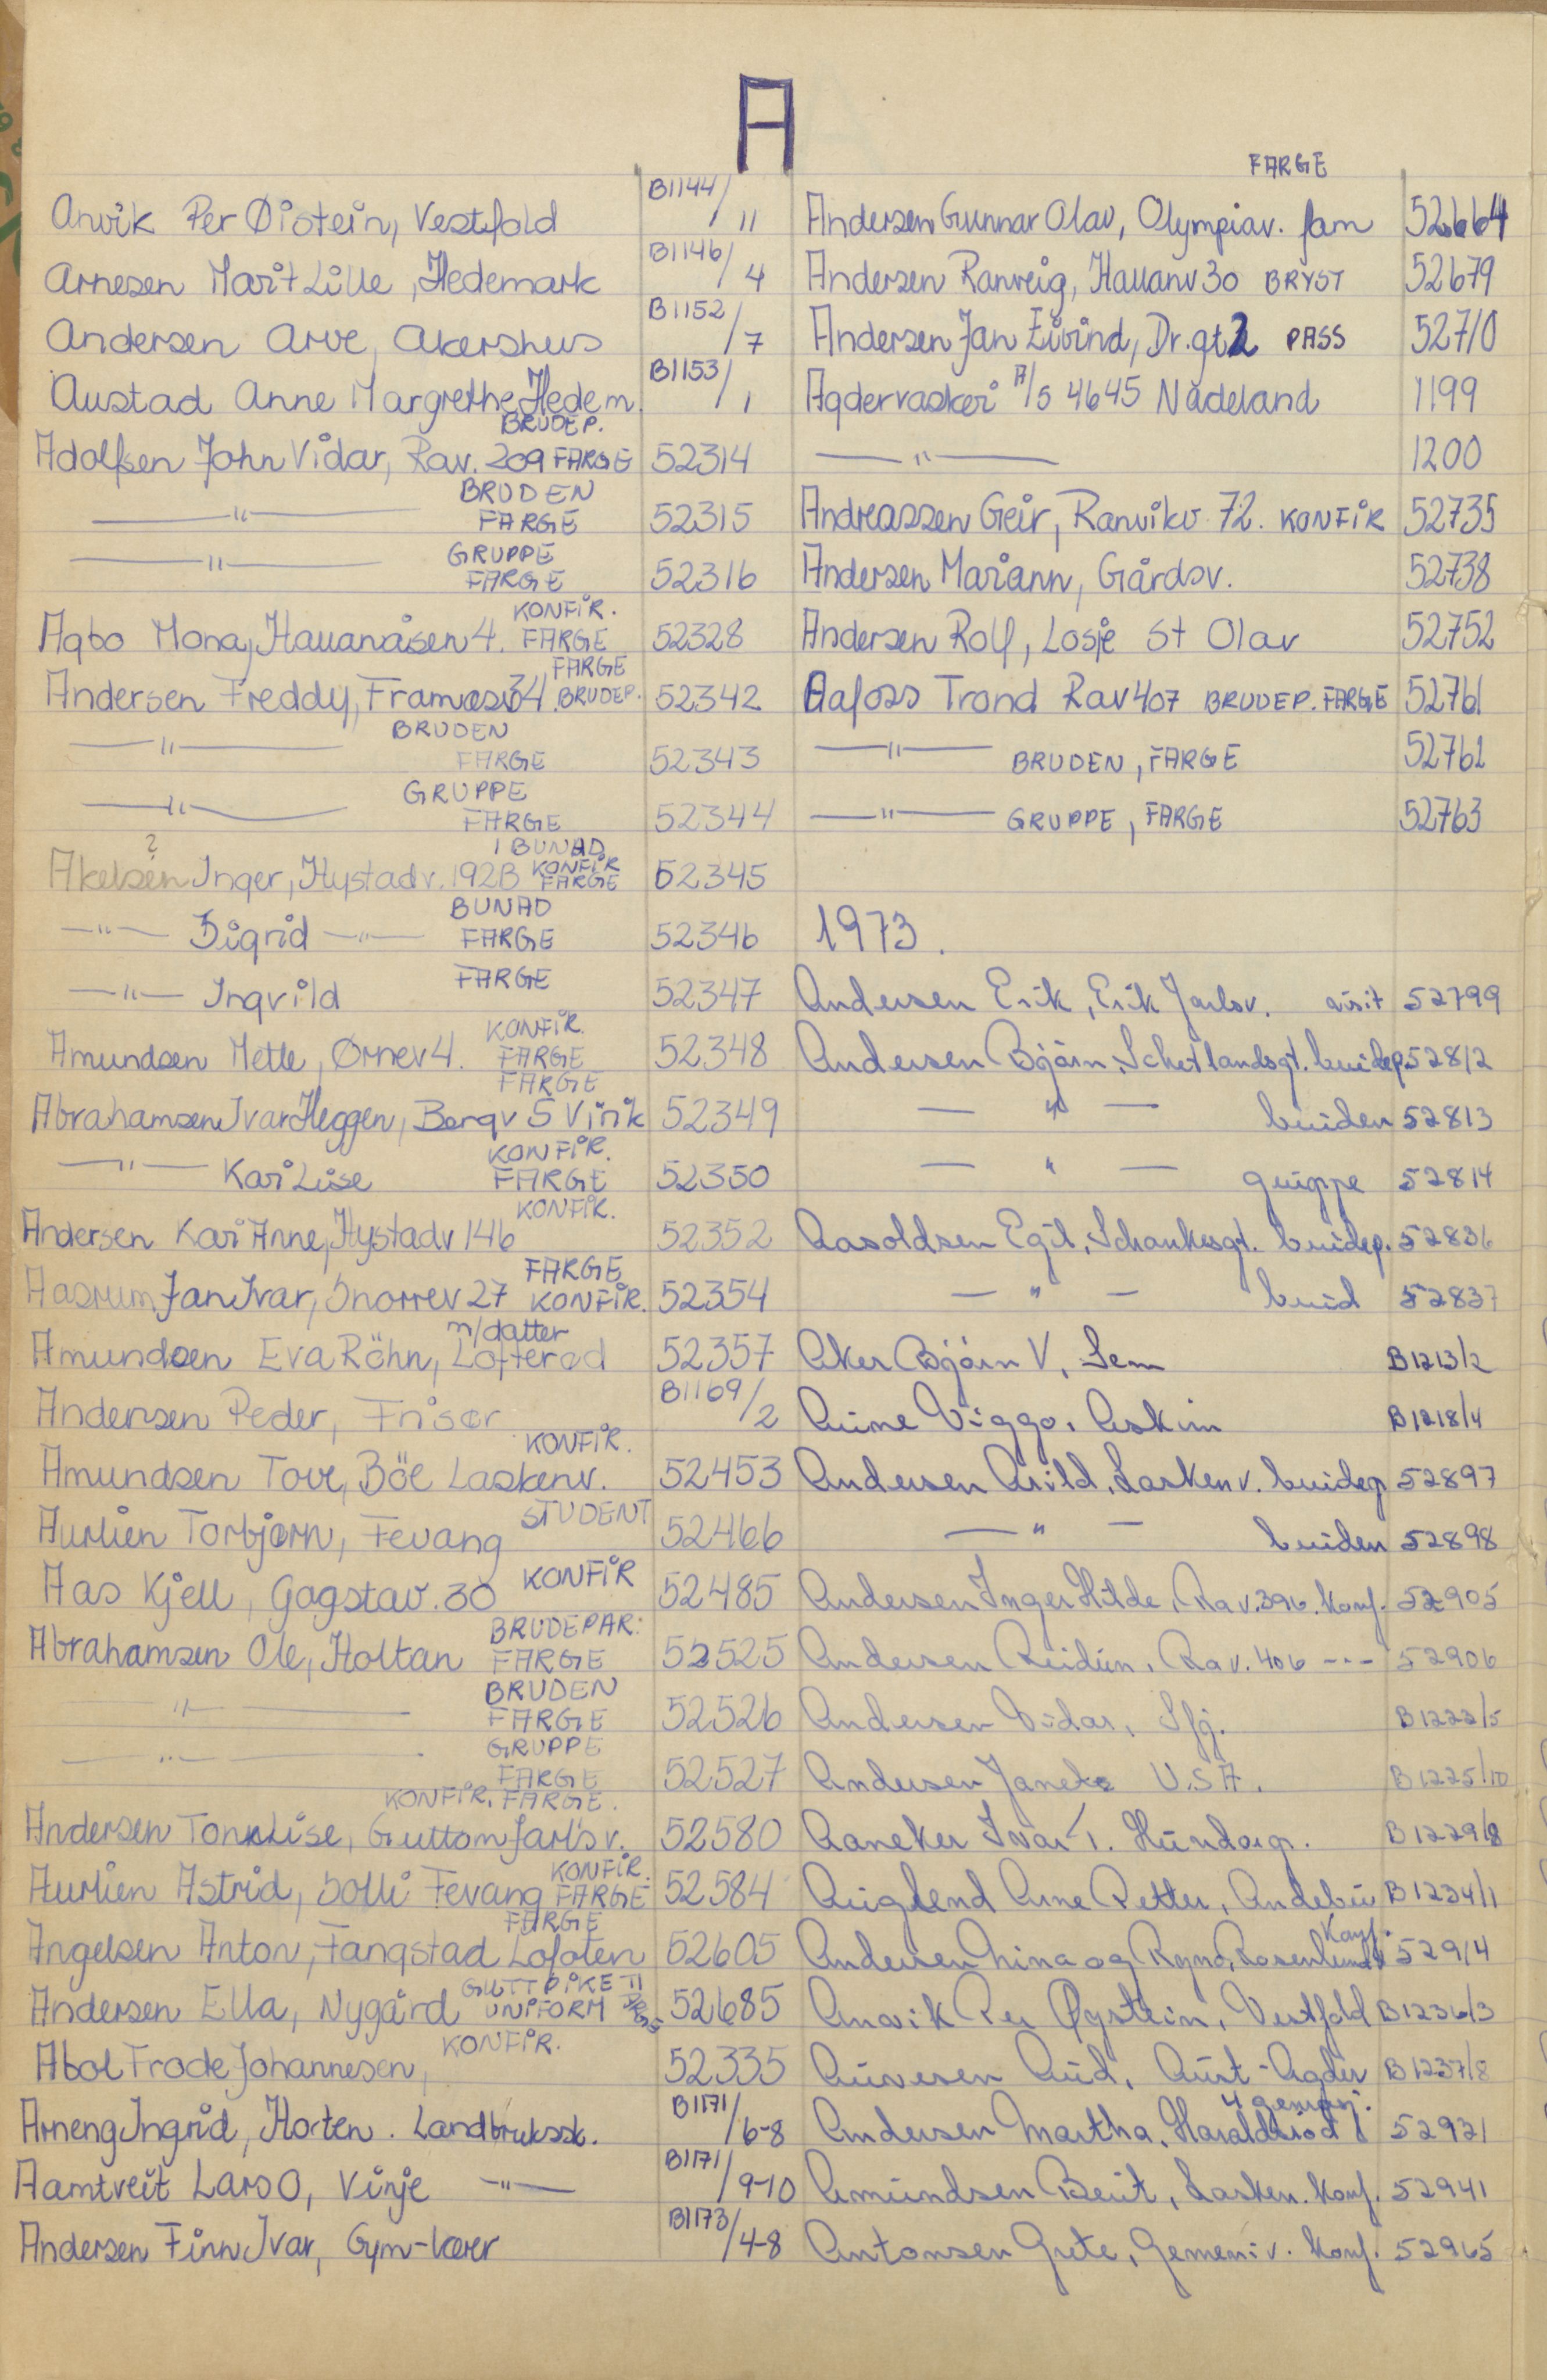 A
Anvik Per Øistein, Vestfold B1144/11
Arnesen Marit Lille, Hedemark B1146/4
Andersen Arve, Akershus B1152/7
Austad Anne Margrethe Hedem. B1153/1
BRUDEP.
Adolfsen John Vidar, Rav. 209 FARGE 52314
BRUDEN
—"— FARGE 52315
GRUPPE
—"— FARGE 52316
KONFIR.
Agbo Mona, Hauanåsen 4. FARGE 52328
FARGE
Andersen Freddy, Framnesv 34. BRUDEP. 52342
BRUDEN
—"— FARGE 52343
GRUPPE
—"— FARGE 52344
? I BUNAD
KONFIR
Akelsen Inger, Hystadv. 192B FARGE 52345
BUNAD
—"— Sigrid —"— FARGE 52346
—"— Ingvild FARGE 52347
KONFIR.
Amundsen Mette, Ørnev 4. FARGE 52348
FARGE
Abrahamsen Ivar Heggen, Bergv 5 Virik 52349
KONFIR.
—"— Kari Lise FARGE 52350
KONFIR.
Andersen Kari Anne, Hystadv 146 52352
FARGE
Aasrum Jan Ivar, Snorrev 27 KONFIR. 52354
m/datter
Amundsen Eva Röhn, Lofterød 52357
Andersen Peder, Frisør B1169/2
KONFIR.
Amundsen Tove, Böe Laskenv. 52453
STUDENT
Aurlien Torbjørn, Fevang 52466
Aas Kjell, Gogstav. 30 KONFIR 52485
BRUDEPAR:
Abrahamsen Ole, Holtan FARGE 52525
BRUDEN
—"— FARGE 52526
GRUPPE
—"— FARGE 52527
KONFIR. FARGE.
Andersen Tone Lise, Guttom Jarls v. 52580
KONFIR.
Aurlien Astrid, Solli Fevang FARGE 52584
FARGE
Angelsen Anton, Fangstad Lofoten 52605
GUTT PIKE
Andersen Ella, Nygård UNIFORM 52685
KONFIR.
Abol Frode Johannesen, 52335
Arneng Ingrid, Horten. Landbrukssk. B1171/6-8
Aamtveit Lars O, Vinje —"— B1171/9-10
Andersen Finn Ivar, Gym-lærer B1173/4-8
FARGE
Andersen Gunnar Olav, Olympiav. fam 52664
Andersen Ranveig, Hauanv 30 BRYST 52679
Andersen Jan Eivind, Dr.gt 2 PASS 52710
Agdervasker A/S 4645 Nodeland 1199
—"— 1200
Andreassen Geir, Ranvikv 72. KONFIR 52735
Andersen Mariann, Gårdsv. 52738
Andersen Rolf, Losje St Olav 52752
Aafoss Trond Rav 407 BRUDEP. FARGE 52761
—"— BRUDEN, FARGE 52762
—"— GRUPPE, FARGE 52763
1973.
Andersen Erik, Erik Jarlsv. visit 52799
Andersen Bjørn, Schetlandsgt. brudep. 52812
—"— bruden 52813
—"— gruppe 52814
Aasoldsen Egil, Schankesgt. brudep. 52836
—"— brud 52837
Aker Bjørn V, Sem B1213/2
Aune Viggo, Askim B1218/4
Andersen Arild, Laskenv. brudep 52897
—"— bruden 52898
Andersen Inger Hilde, Rav. 396. konf. 52905
Andersen Reidun, Rav. 406 -"- 52906
Andersen Vidar, Sfj. B1222/5
Andersen Janeke U.S.A. B1225/10
Aaneker Ivar T. Hundorp. B1229/8
Auglend Arne Petter, Andebu B1234/1
Konf.
Andersen Nina og Ragnar, Rosenlundv 52914
Anvik Per Øystein, Vestfold B1236/3
Auvesen Aud, Aust-Agder B1237/8
4 generasj.
Andersen Martha, Haraldsrød 52931
Amundsen Berit, Lasken. konf. 52941
Antonsen Grete, Gemeniv. konf. 52965